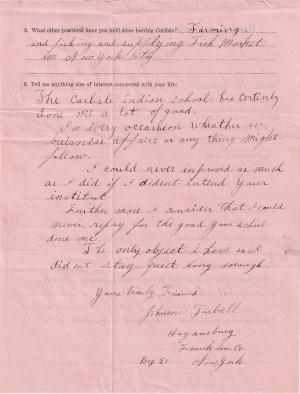 8. What other positions have you held since leaving Carlisle? Farming
and fishing and supplying Fish Market
in New York City
9. Tell me anything else of interest connected with your life:
The Carlisle indian school has certinly
done me a lot of good.
In every occashion wheather in
buisness affairs or any thing might
follow.
I could never inproved as much
as I did if I dident intend your
institut
Further more I consider that I could
never repay for the good your school
done me.
The only object i have is I
dident stay quiet long enough.
Yours truly Friend
Johnson Tarbell
Hogansburg
Franklin Co.
Box 81 New York